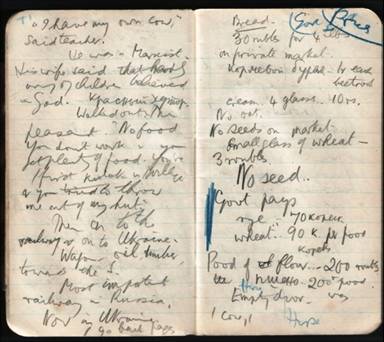 "I have my own cow,"
said teacher.
He was a Marxist.
His wife said that hardly
any of children believed
in God.
Walked out. The
peasant. "No food
You don't work & you
get plenty of food. You're
first
& you tried to throw
me out of my hut.
Then on to the
railway & on to Ukraine.
Wagons oil, timber,
towards the S.
Most important
railway in Russia.
Now in Ukraine
go back page
Bread. Govt Price
30 rubles for 4 lbs
on private market.
for each
beetroot
Cream. 4 glasses. 10rs.
No oats.
No seeds on market.
Small glass of wheat –
3 roubles.
No seed..
Govt pays
rye – 70 kopecs
wheat: 90 K. per pood
kopeks
Pood of flour – 200 roubles
200 pood
Empty door
1 Cow,,